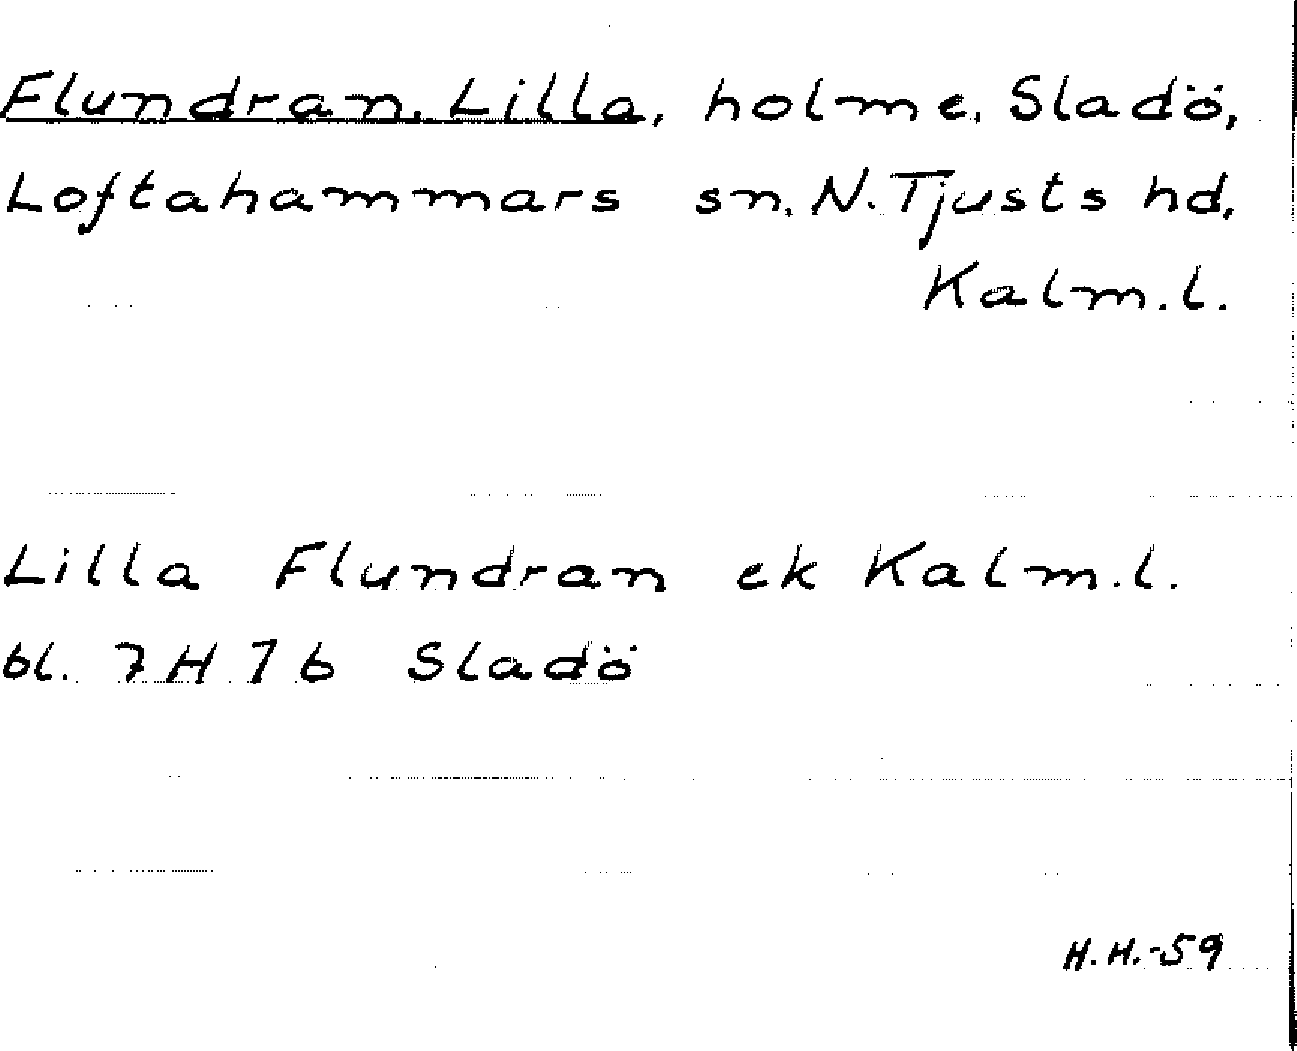 Flundran, Lilla, holme, Sladö,
Loftahammars sn, N. Tjusts hd,
Kalm. l.
Lilla Flundran ek Kalm. l.
bl. 7H7b Sladö
H. H. -59